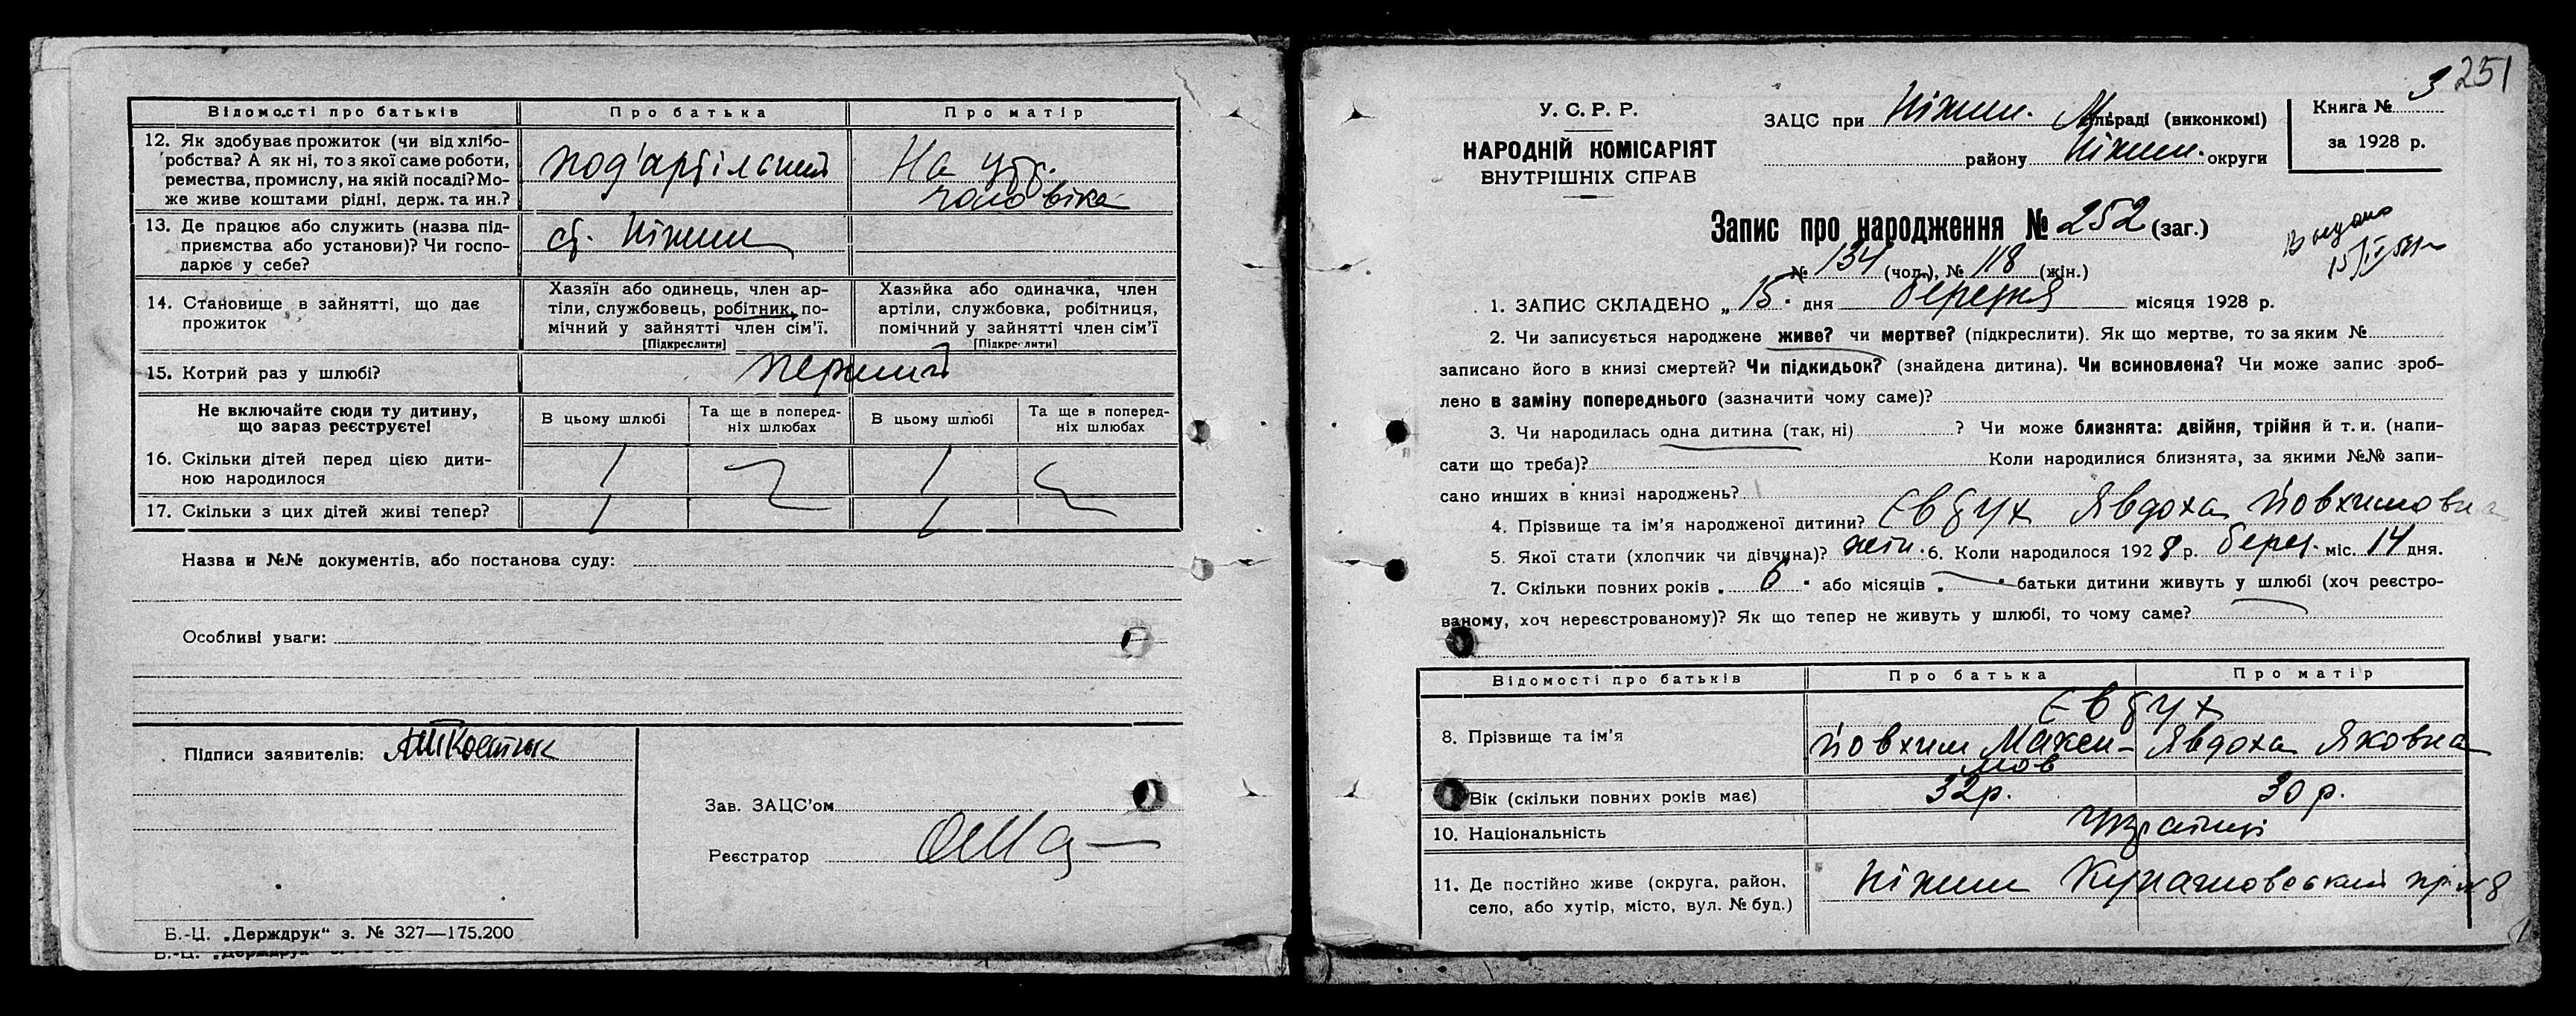 Відомості про батьків Про батька Про матір
12. Як здобуває прожиток (чи від хлібо-
робства? А як ні, то з якої саме роботи,
ремества, промислу, на якій посаді? Мо-
же живе коштами рідні, держ. та ин.?
под'артільний
На утр.
чоловіка
13. Де працює або служить (назва під-
приємства або установи)? Чи госпо-
дарює у себе?
ст. Ніжин
14. Становище в зайнятті, що дає
прожиток
Хазяїн або одинець, член ар-
тіли, службовець, робітник, по-
мічний у зайнятті член сім'ї.
[Підкреслити]
Хазяйка або одиначка, член
артіли, службовка, робітниця,
помічний у зайнятті член сім'ї
[Підкреслити]
15. Котрий раз у шлюбі? перший
Не включайте сюди ту дитину,
що зараз реєструєте!
В цьому шлюбі
Та ще в поперед-
ніх шлюбах
В цьому шлюбі
Та ще в поперед-
ніх шлюбах
16. Скільки дітей перед цією дити-
ною народилося
1 1
17. Скільки з цих дітей живі тепер? 1 1
Назва и №№ документів, або постанова суду:
Особливі уваги:
Підписи заявителів:
Зав. ЗАЦС'ом
Реєстратор
Б.-Ц. „Держдрук“ з. № 327—175.200
251
У. С. Р. Р.
НАРОДНІЙ КОМІСАРІЯТ
ВНУТРІШНІХ СПРАВ
ЗАЦС при Ніжин. М раді (виконкомі)
району Ніжин. округи
Книга № 3
за 1928 р.
Запис про народження № 252 (заг.)
№ 134 (чол.), № 118 (жін.)
Выдано
1. ЗАПИС СКЛАДЕНО „15“ дня березня місяця 1928 р.
2. Чи записується народжене живе? чи мертве? (підкреслити). Як що мертве, то за яким №
записано його в книзі смертей? Чи підкидьок? (знайдена дитина). Чи всиновлена? Чи може запис зроб-
лено в заміну попереднього (зазначити чому саме)?
3. Чи народилась одна дитина (так, ні) ? Чи може близнята: двійня, трійня й т. и. (напи-
сати що треба)? Коли народилися близнята, за якими №№ запи-
сано инших в книзі народжень?
4. Прізвище та ім'я народженої дитини? Євтух Явдоха Йовхимовна
5. Якої стати (хлопчик чи дівчина)? жін. 6. Коли народилося 1928 р. берез. міс. 14 дня.
7. Скільки повних років „ 6 “ або місяців „ “ батьки дитини живуть у шлюбі (хоч реєстро-
ваному, хоч нереєстрованому)? Як що тепер не живуть у шлюбі, то чому саме?
Відомості про батьків Про батька Про матір
Євтух
8. Прізвище та ім'я Йовхим Макси- Явдоха Яковна
мов
Вік (скільки повних років має) 32 р. 30 р.
10. Національність Українці
11. Де постійно живе (округа, район,
село, або хутір, місто, вул. № буд.)
Ніжин Кунашовський пр. № 8